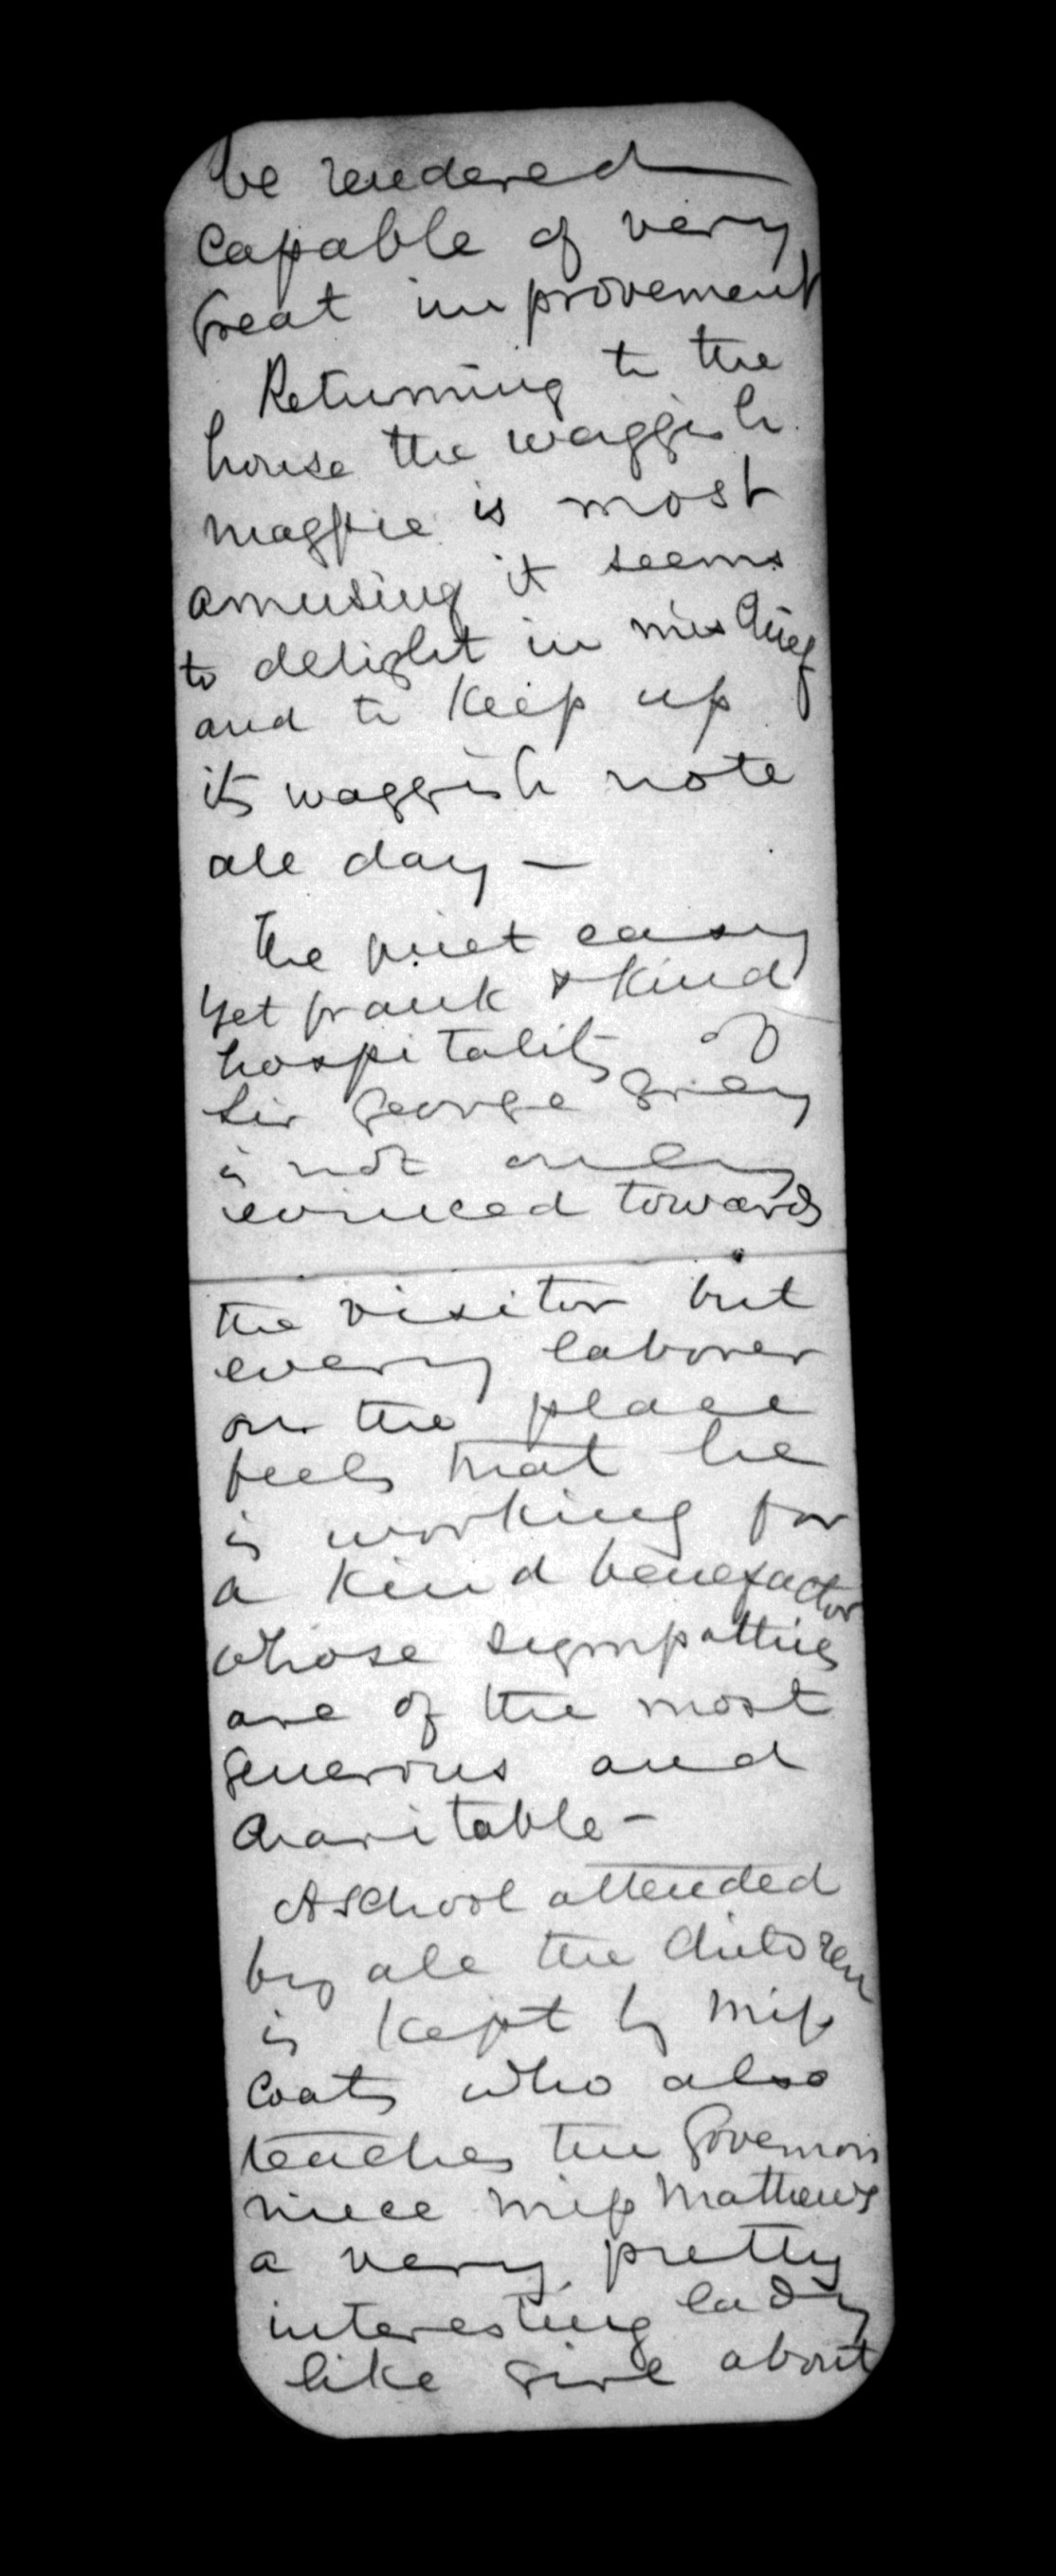 be rendered
capable of very
Great improvement
Returning to the
house the waggish
magpie is most
amusing it seems
to delight in mischief
and to keep up
its waggish note
all day —
The quiet easy
yet frank & kind
hospitality of
Sir George Grey
is not only
evinced towards
the visitor but
every laborer
on the place
feels that he
is working for
a kind benefactor
whose sympathies
are of the most
generous and
charitable —
A school attended
by all the children
is kept by Miss
Coats who also
teaches the Governors
niece Miss Mathews
a very pretty
interesting lady
like girl about